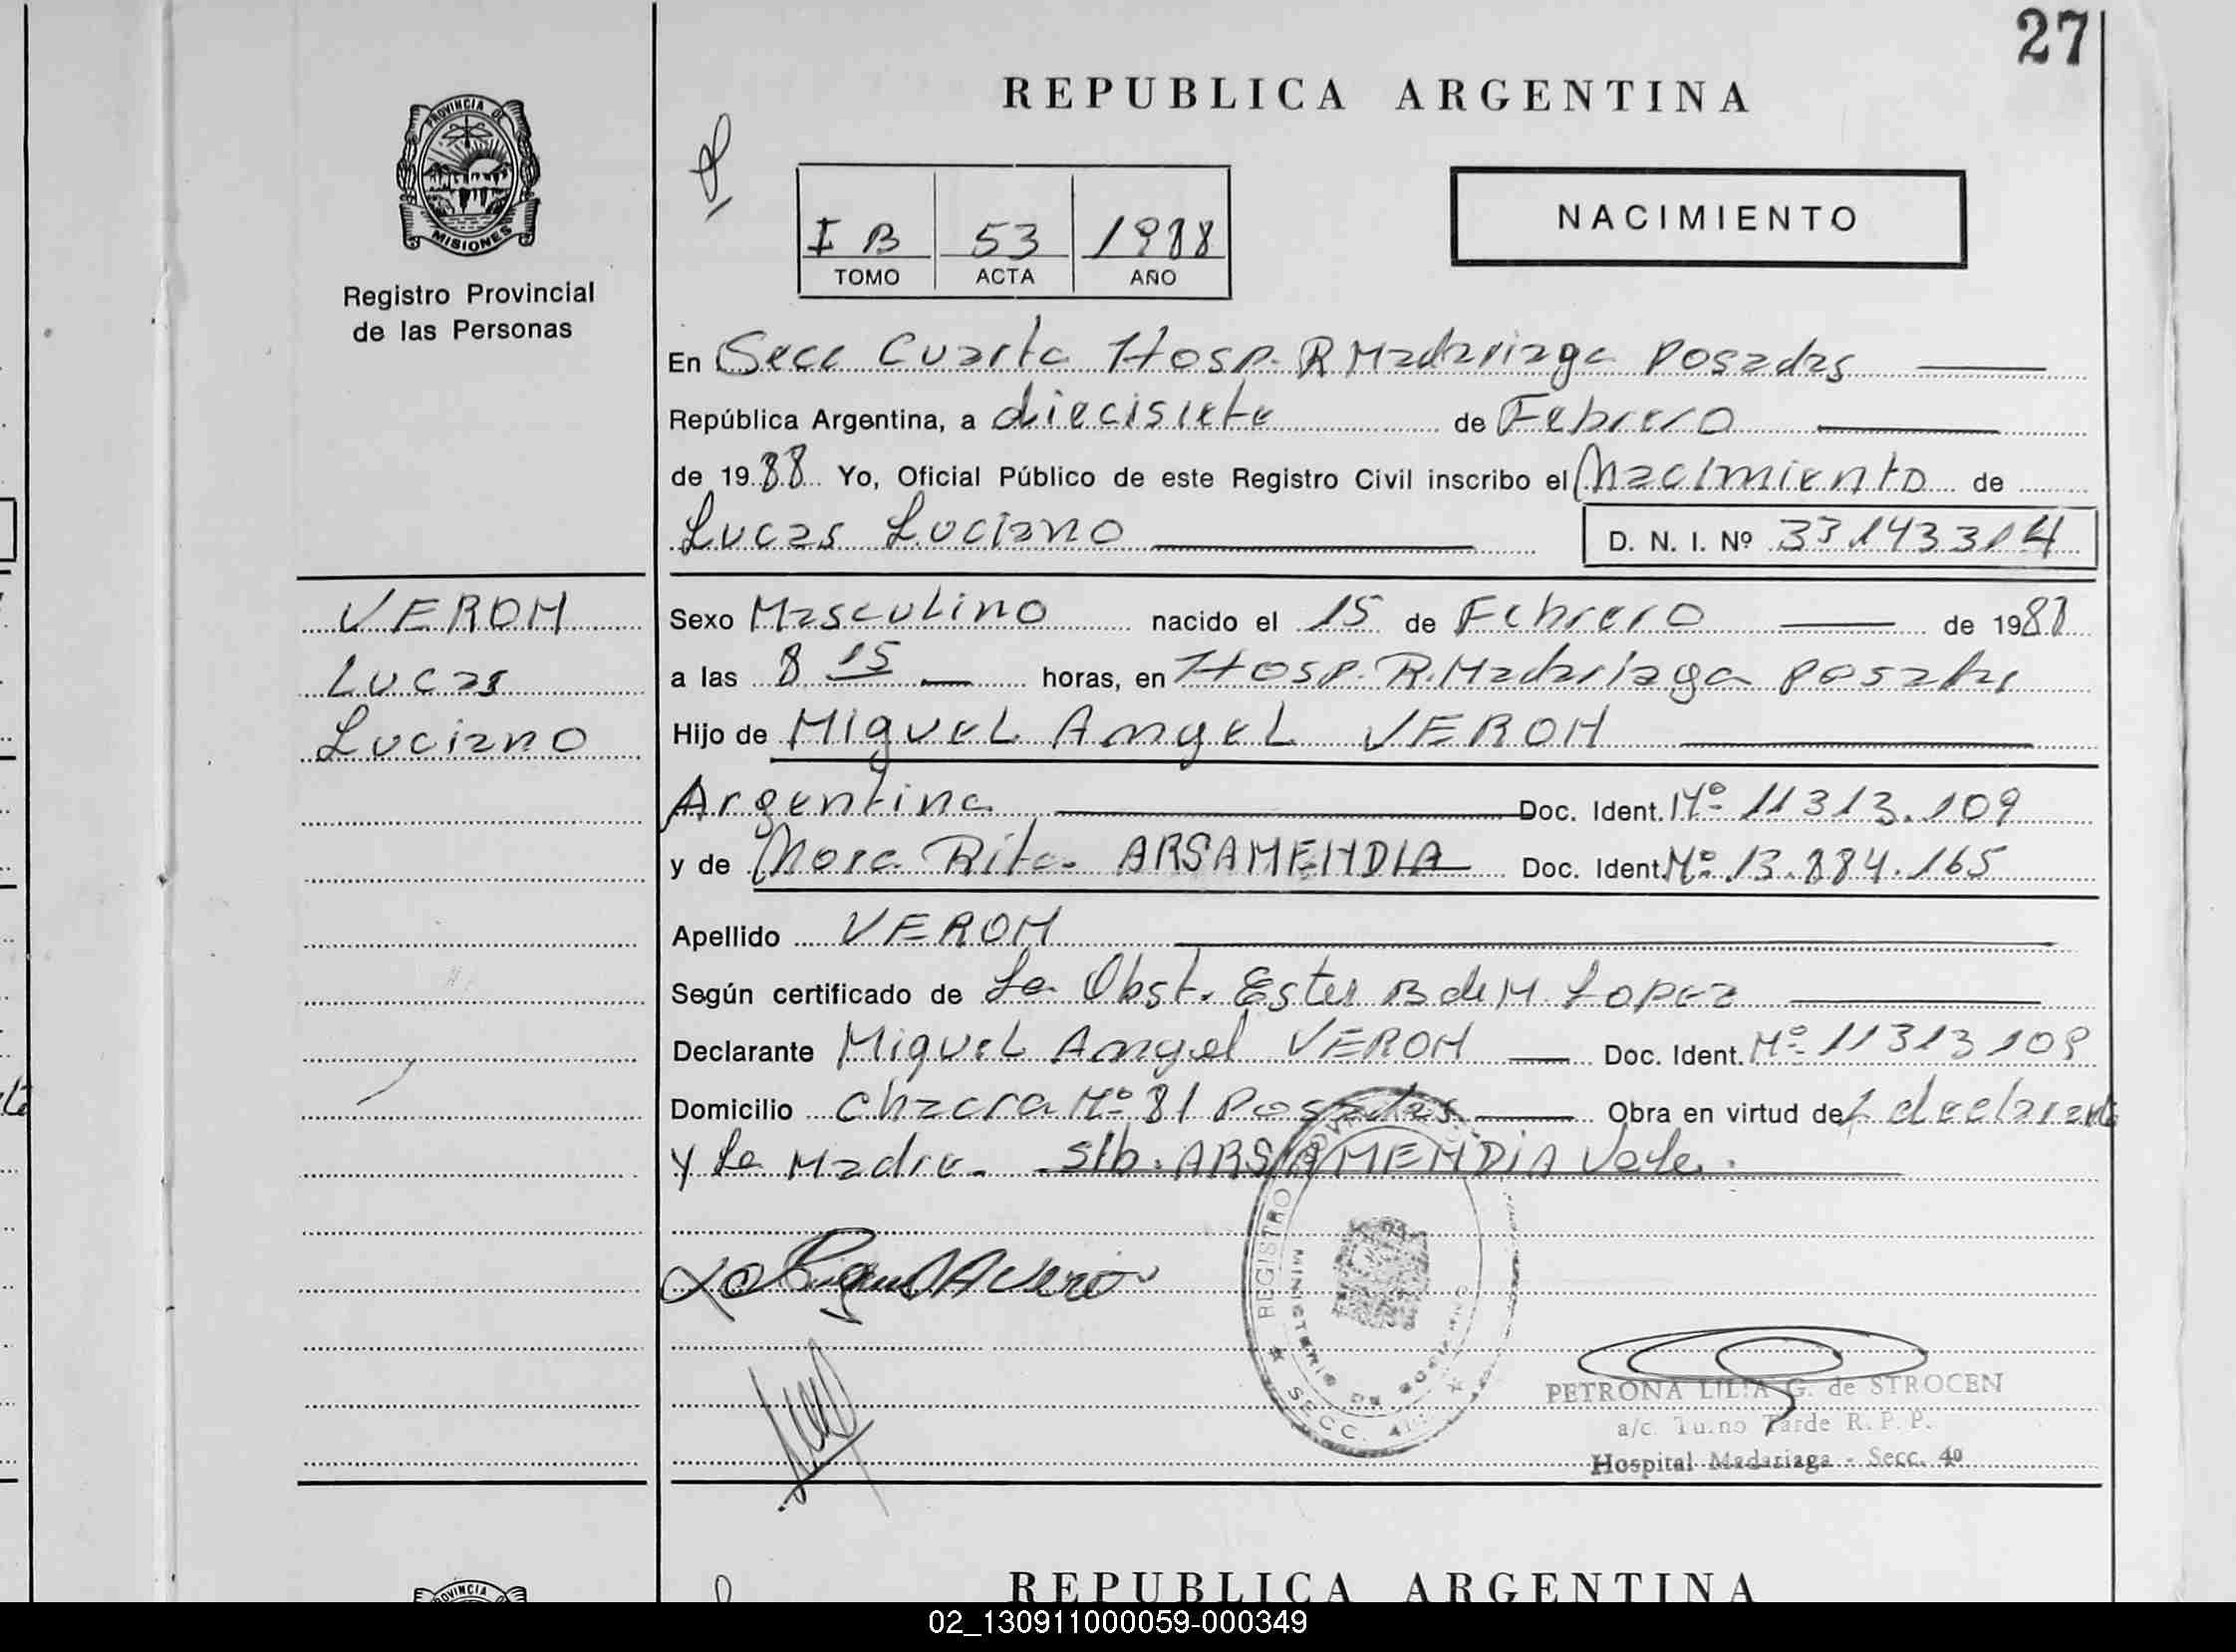 27
REPUBLICA ARGENTINA
PROVINCIA DE
MISIONES
Registro Provincial
de las Personas
I B 53 1988
TOMO ACTA AÑO
NACIMIENTO
En Secc Cuarta Hosp. R Madariaga Posadas
República Argentina, a diecisiete de Febrero
de 1988 Yo, Oficial Público de este Registro Civil inscribo el Nacimiento de
Lucas Luciano D. N. I. Nº 33143314
VERON
Lucas
Luciano
Sexo Masculino nacido el 15 de Febrero de 1988
a las 8 15 horas, en Hosp. R. Madariaga Posadas
Hijo de Miguel Angel VERON
Argentina Doc. Ident. Nº 11313.109
y de Nora Rita ARSAMENDIA Doc. Ident. Nº 13.884.165
Apellido VERON
Según certificado de La Obst. Ester B de M. Lopez
Declarante Miguel Angel VERON Doc. Ident. Nº 11313109
Domicilio Chacra Nº 81 Posadas Obra en virtud de declarante
y La Madre. s/b. ARSAMENDIA Vale.
REGISTRO
MINISTERIO DE GOBIERNO
SECC.
PETRONA LILIA G. de STROCEN
a/c. Turno Tarde R. P. P.
Hospital Madariaga - Secc. 4º
PROVINCIA
REPUBLICA ARGENTINA
02_130911000059-000349